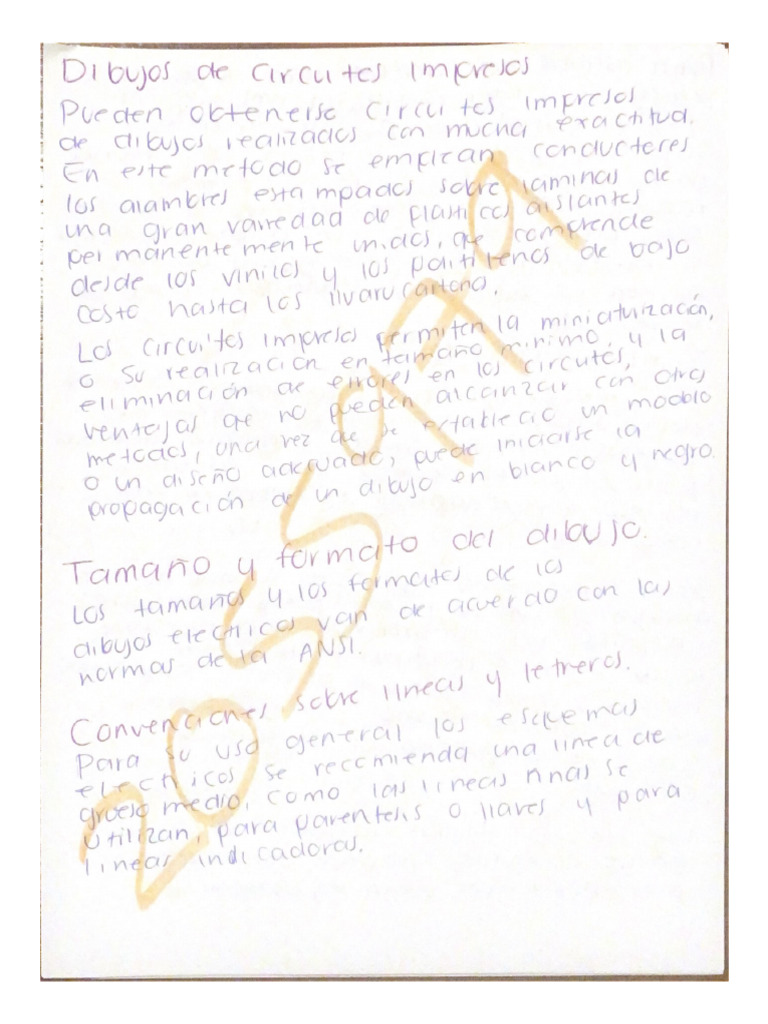 Dibujos de circuitos impresos
Pueden obtenerse circuitos impresos
de dibujos realizados con mucha exactitud.
En este metodo se emplean conductores
los alambres estampados sobre laminas de
una gran variedad de plasticos aislantes
permanentemente unidos, que comprende
desde los vinilos y los politilenos de bajo
costo hasta los
Los circuitos impresos permiten la miniaturización,
o su realización en tamaño minimo, y la
eliminación de errores en los circuitos,
ventajas que no pueden alcanzar con otros
metodos, una vez que se establecio un modelo
o un diseño adecuado, puede iniciarse la
propagación de un dibujo en blanco y negro.
Tamaño y formato del dibujo.
Los tamaños y los formatos de los
dibujos electricos van de acuerdo con las
normas de la ANSI.
Convenciones sobre lineas y letreros.
Para su uso general los esquemas
electricos se recomienda una linea de
grueso medio, como las lineas finas se
utilizan, para parentesis o llaves y para
lineas indicadoras.
2055979